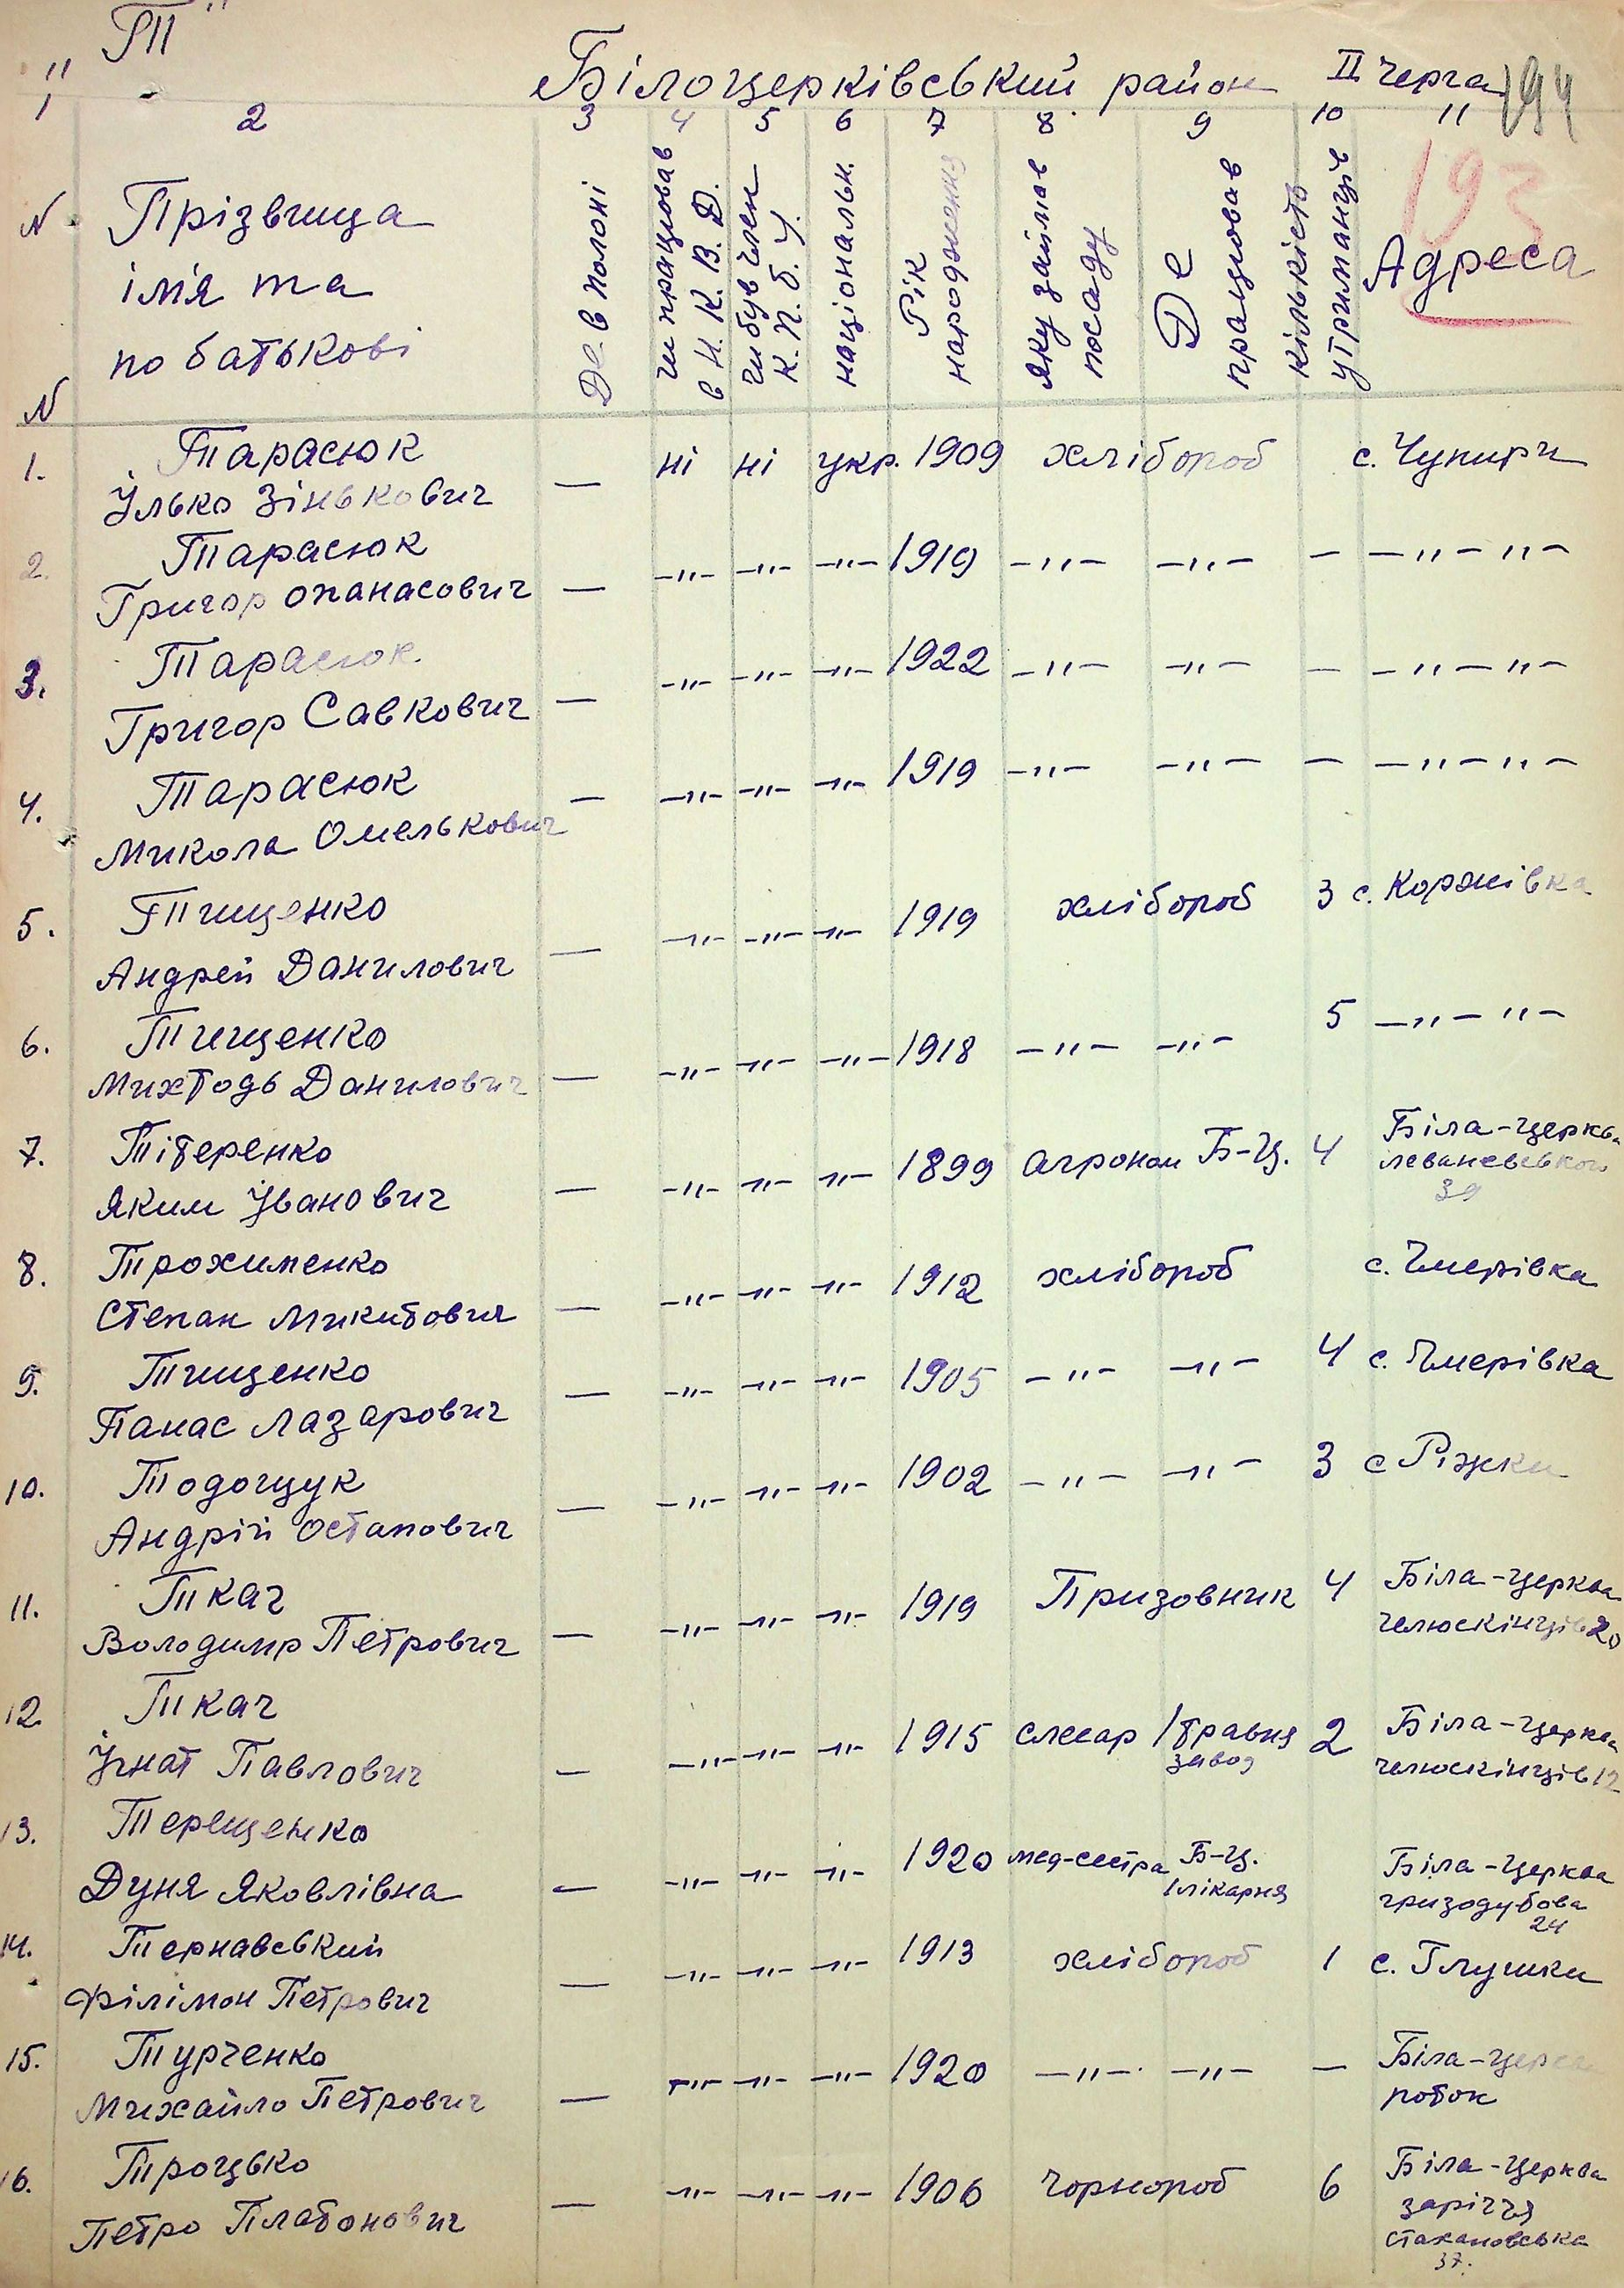 "Т"
Білоцерківський район II черга 194
193
1 2 3 4 5 6 7 8 9 10 11
N N Прізвища ім'я та по батькові
Де в полоні
чи працював в Н.К.В.Д.
чи був член К.П.б.У.
національн.
Рік народження
яку займав посаду
Де працював
кількість утриманців
Адреса
1. Тарасюк — ні ні укр. 1909 хлібороб с. Чупири
Ілько Зінькович
2. Тарасюк — —"— —"— —"— 1919 —"— —"— — —"—"—
Григор Опанасович
3. Тарасюк — —"— —"— —"— 1922 —"— —"— — —"—"—
Григор Савкович
4. Тарасюк — —"— —"— —"— 1919 —"— —"— — —"—"—
Микола Омелькович
5. Тищенко — —"— —"— —"— 1919 хлібороб 3 с. Коржівка
Андрей Данилович
6. Тищенко — —"— —"— —"— 1918 —"— —"— 5 —"—"—
Михтодь Данилович
7. Тітеренко — —"— —"— —"— 1899 агроном Б-Ц. 4 Біла-Церква
Яким Іванович леваневської
39
8. Трохименко — —"— —"— —"— 1912 хлібороб с. Чмерівка
Степан Микитович
9. Тищенко — —"— —"— —"— 1905 —"— —"— 4 с. Чмерівка
Панас Лазарович
10. Тодощук — —"— —"— —"— 1902 —"— —"— 3 с Ріжки
Андрій Остапович
11. Ткач — —"— —"— —"— 1919 Призовник 4 Біла-Церква
Володимр Петрович челюскінців 20
12. Ткач — —"— —"— —"— 1915 слесар 1 травня 2 Біла-Церква
Ігнат Павлович завод челюскінців 12
13. Терещенко — —"— —"— —"— 1920 мед-сестра Б-Ц. Біла-Церква
Дуня Яковлівна 1 лікарня гризодубова
24
14. Тернавський — —"— —"— —"— 1913 хлібороб 1 с. Глушки
Філімон Петрович
15. Турченко — —"— —"— —"— 1920 —"— —"— — Біла-Церква
Михайло Петрович роток
16. Троцько — —"— —"— —"— 1906 Чорнороб 6 Біла-Церква
Петро Платонович заріччя
стахановська
37.